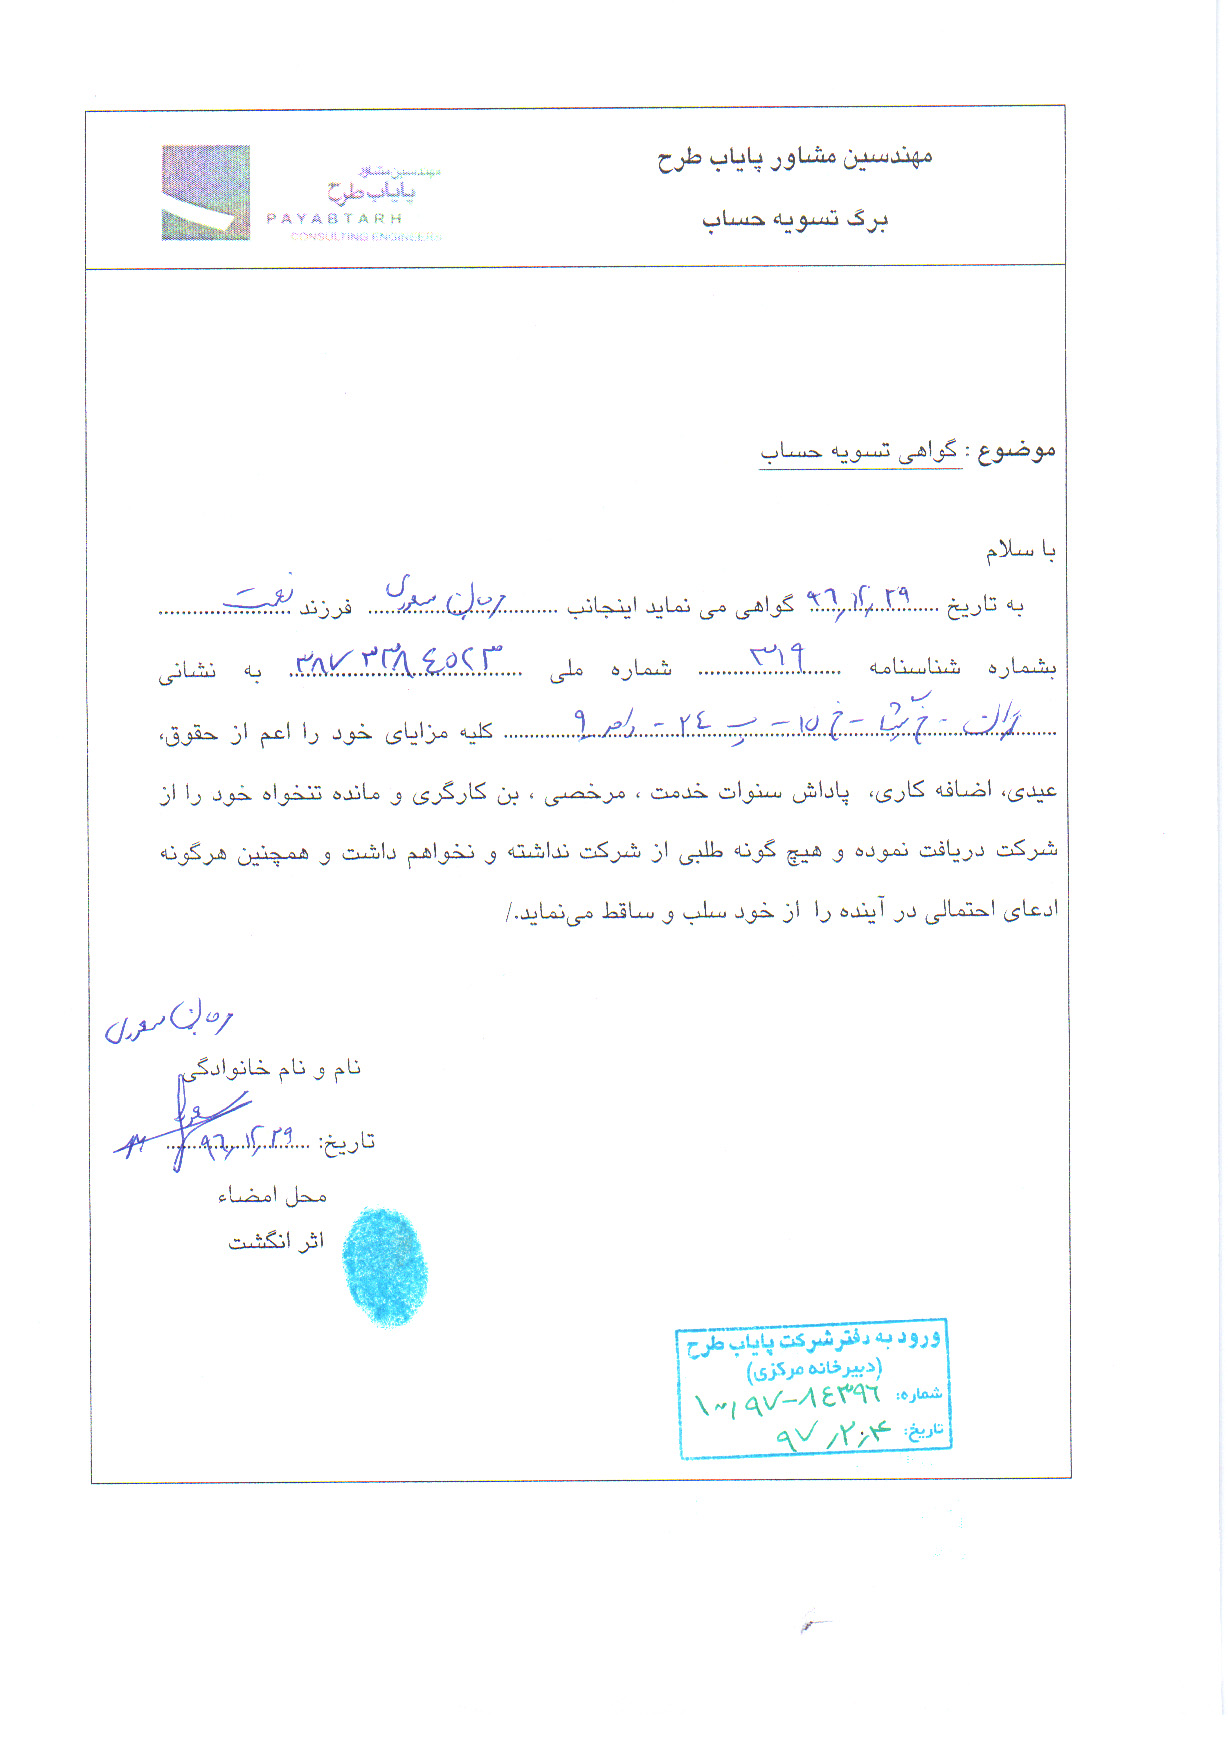 مهندسین مشاور پایاب طرح
برگ تسویه حساب
مهندسین مشاور
پایاب طرح
PAYABTARH
CONSULTING ENGINEERS
موضوع : گواهی تسویه حساب
با سلام
به تاریخ ۹۶,۱۲,۲۹ گواهی می نماید اینجانب فرزند نعمت
بشماره شناسنامه ۳۱۹ شماره ملی ۳۸۷ ۳۳۸ ۴۵۲۳ به نشانی
- خ ۱۵ - پ ۲۴ - واحد ۹ کلیه مزایای خود را اعم از حقوق،
عیدی، اضافه کاری، پاداش سنوات خدمت ، مرخصی ، بن کارگری و مانده تنخواه خود را از
شرکت دریافت نموده و هیچ گونه طلبی از شرکت نداشته و نخواهم داشت و همچنین هرگونه
ادعای احتمالی در آینده را از خود سلب و ساقط می‌نماید./
نام و نام خانوادگی
تاریخ: ۹۶,۱۲,۲۹
محل امضاء
اثر انگشت
ورود به دفتر شرکت پایاب طرح
(دبیرخانه مرکزی)
شماره: ۱۰۰,۹۷-۸۴۳۹۶
تاریخ: ۹۷,۲,۴